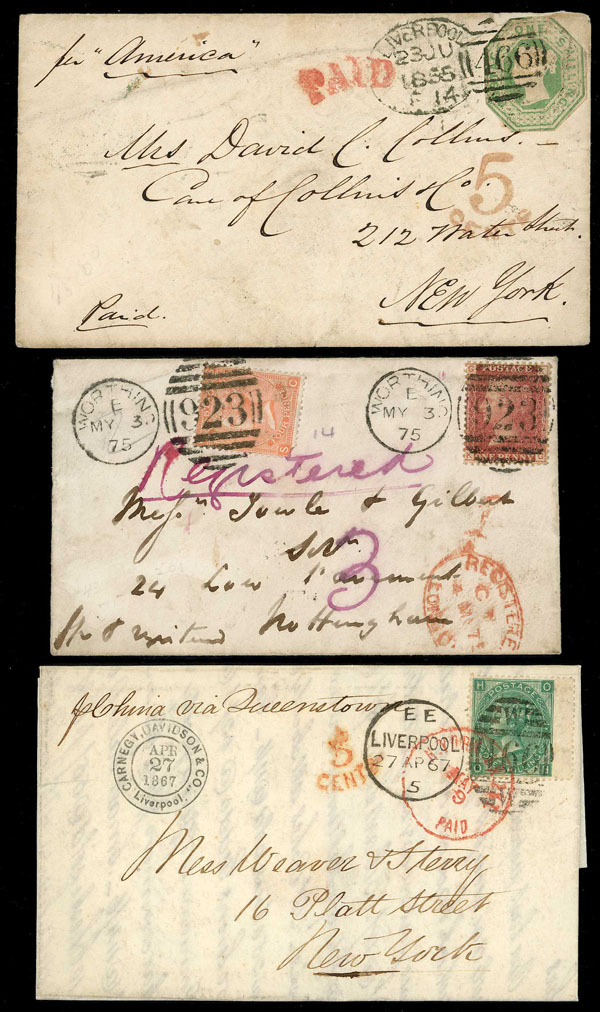 per "America"
PAID
LIVERPOOL
23 JU
1855
F 14
466
ONE SHILLING
Mrs David C. Collins.
Care of Collins & Co.
5
212 Water Street.
New York.
Paid.
WORTHING
E
MY 3
75
923
FOUR PENCE
WORTHING
E
MY 3
75
923
POSTAGE
ONE PENNY
14
Registered
Messrs Towle & Gilbert
3
24 Low Pavement
Nottingham
REGISTERED
LONDON
C
p China via Queenstown
CARNEGY, DAVIDSON & CO.,
APR
27
1867
Liverpool.
5
CENTS
EE
LIVERPOOL
27 AP 67
5
NEW YORK
MAY
9
PAID
POSTAGE
H O
Mess Weaver & Sterry
16 Platt Street
New York